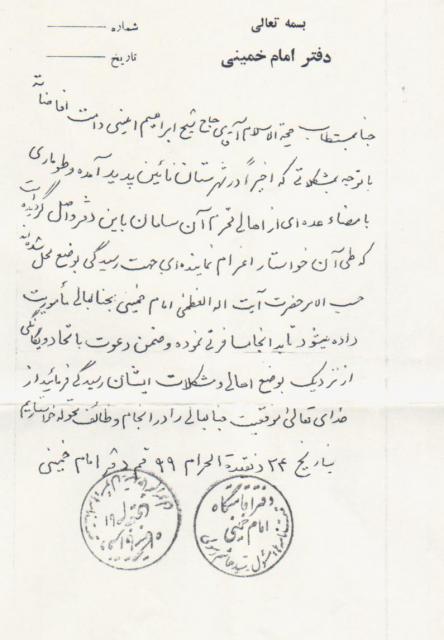 بسمه تعالی
دفتر امام خمینی
شماره
تاریخ
جناب مستطاب حجة الاسلام آقای حاج شیخ ابراهیم امینی دامت افاضاته
با توجه بمشکلاتی که اخیراً در شهرستان نائین پدید آمده و طوماری
با مضاء عده ای از اهالی محترم آن سامان باین دفتر واصل گردیده است
که طی آن خواستار اعزام نماینده ای جهت رسیدگی بوضع محل شده اند
حسب الامر حضرت آیت اله العظمی امام خمینی بجنابعالی مأموریت
داده میشود تا به آنجا مسافرتی نموده و ضمن دعوت باتحاد و یگانگی
از نزدیک بوضع اهالی و مشکلات ایشان رسیدگی فرمائید از
خدای تعالی موفقیت جنابعالی را در انجام وظائف محوله خواستاریم
بتاریخ ۲۴ ذیقعدة الحرام ۹۹ قم دفتر امام خمینی
دفتر اقامتگاه
امام خمینی